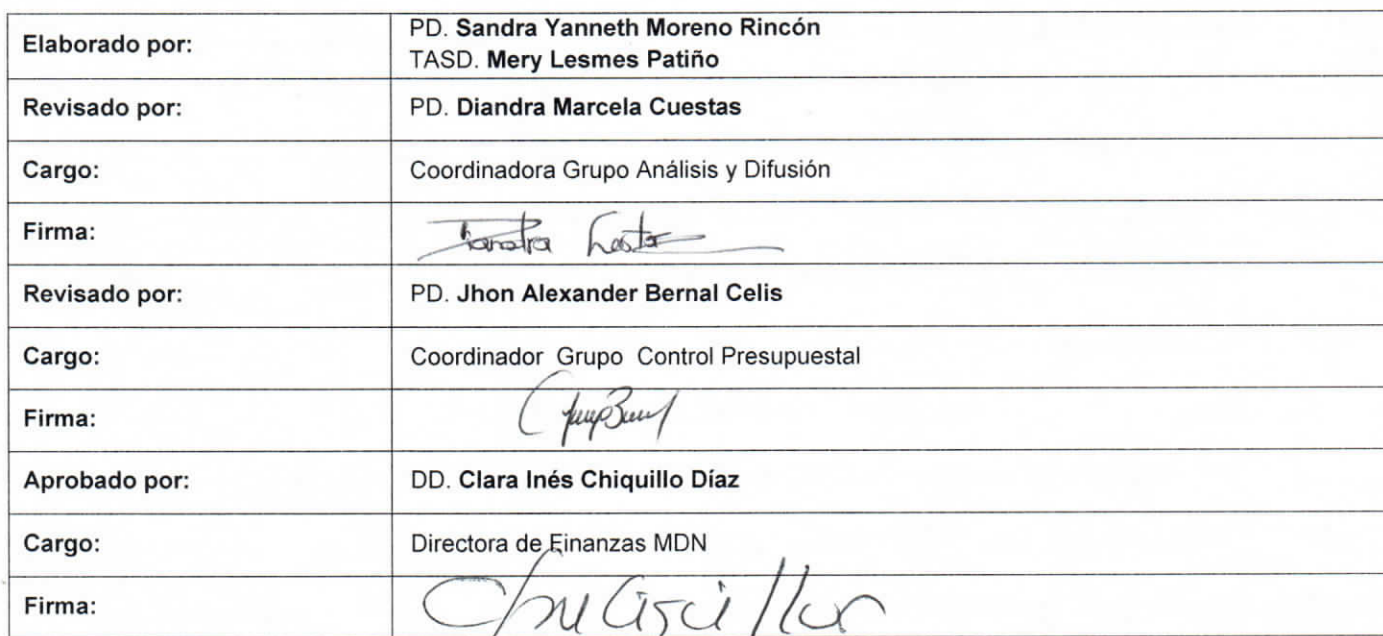 Elaborado por: PD. Sandra Yanneth Moreno Rincón
TASD. Mery Lesmes Patiño
Revisado por: PD. Diandra Marcela Cuestas
Cargo: Coordinadora Grupo Análisis y Difusión
Firma:
Revisado por: PD. Jhon Alexander Bernal Celis
Cargo: Coordinador Grupo Control Presupuestal
Firma:
Aprobado por: DD. Clara Inés Chiquillo Díaz
Cargo: Directora de Finanzas MDN
Firma: